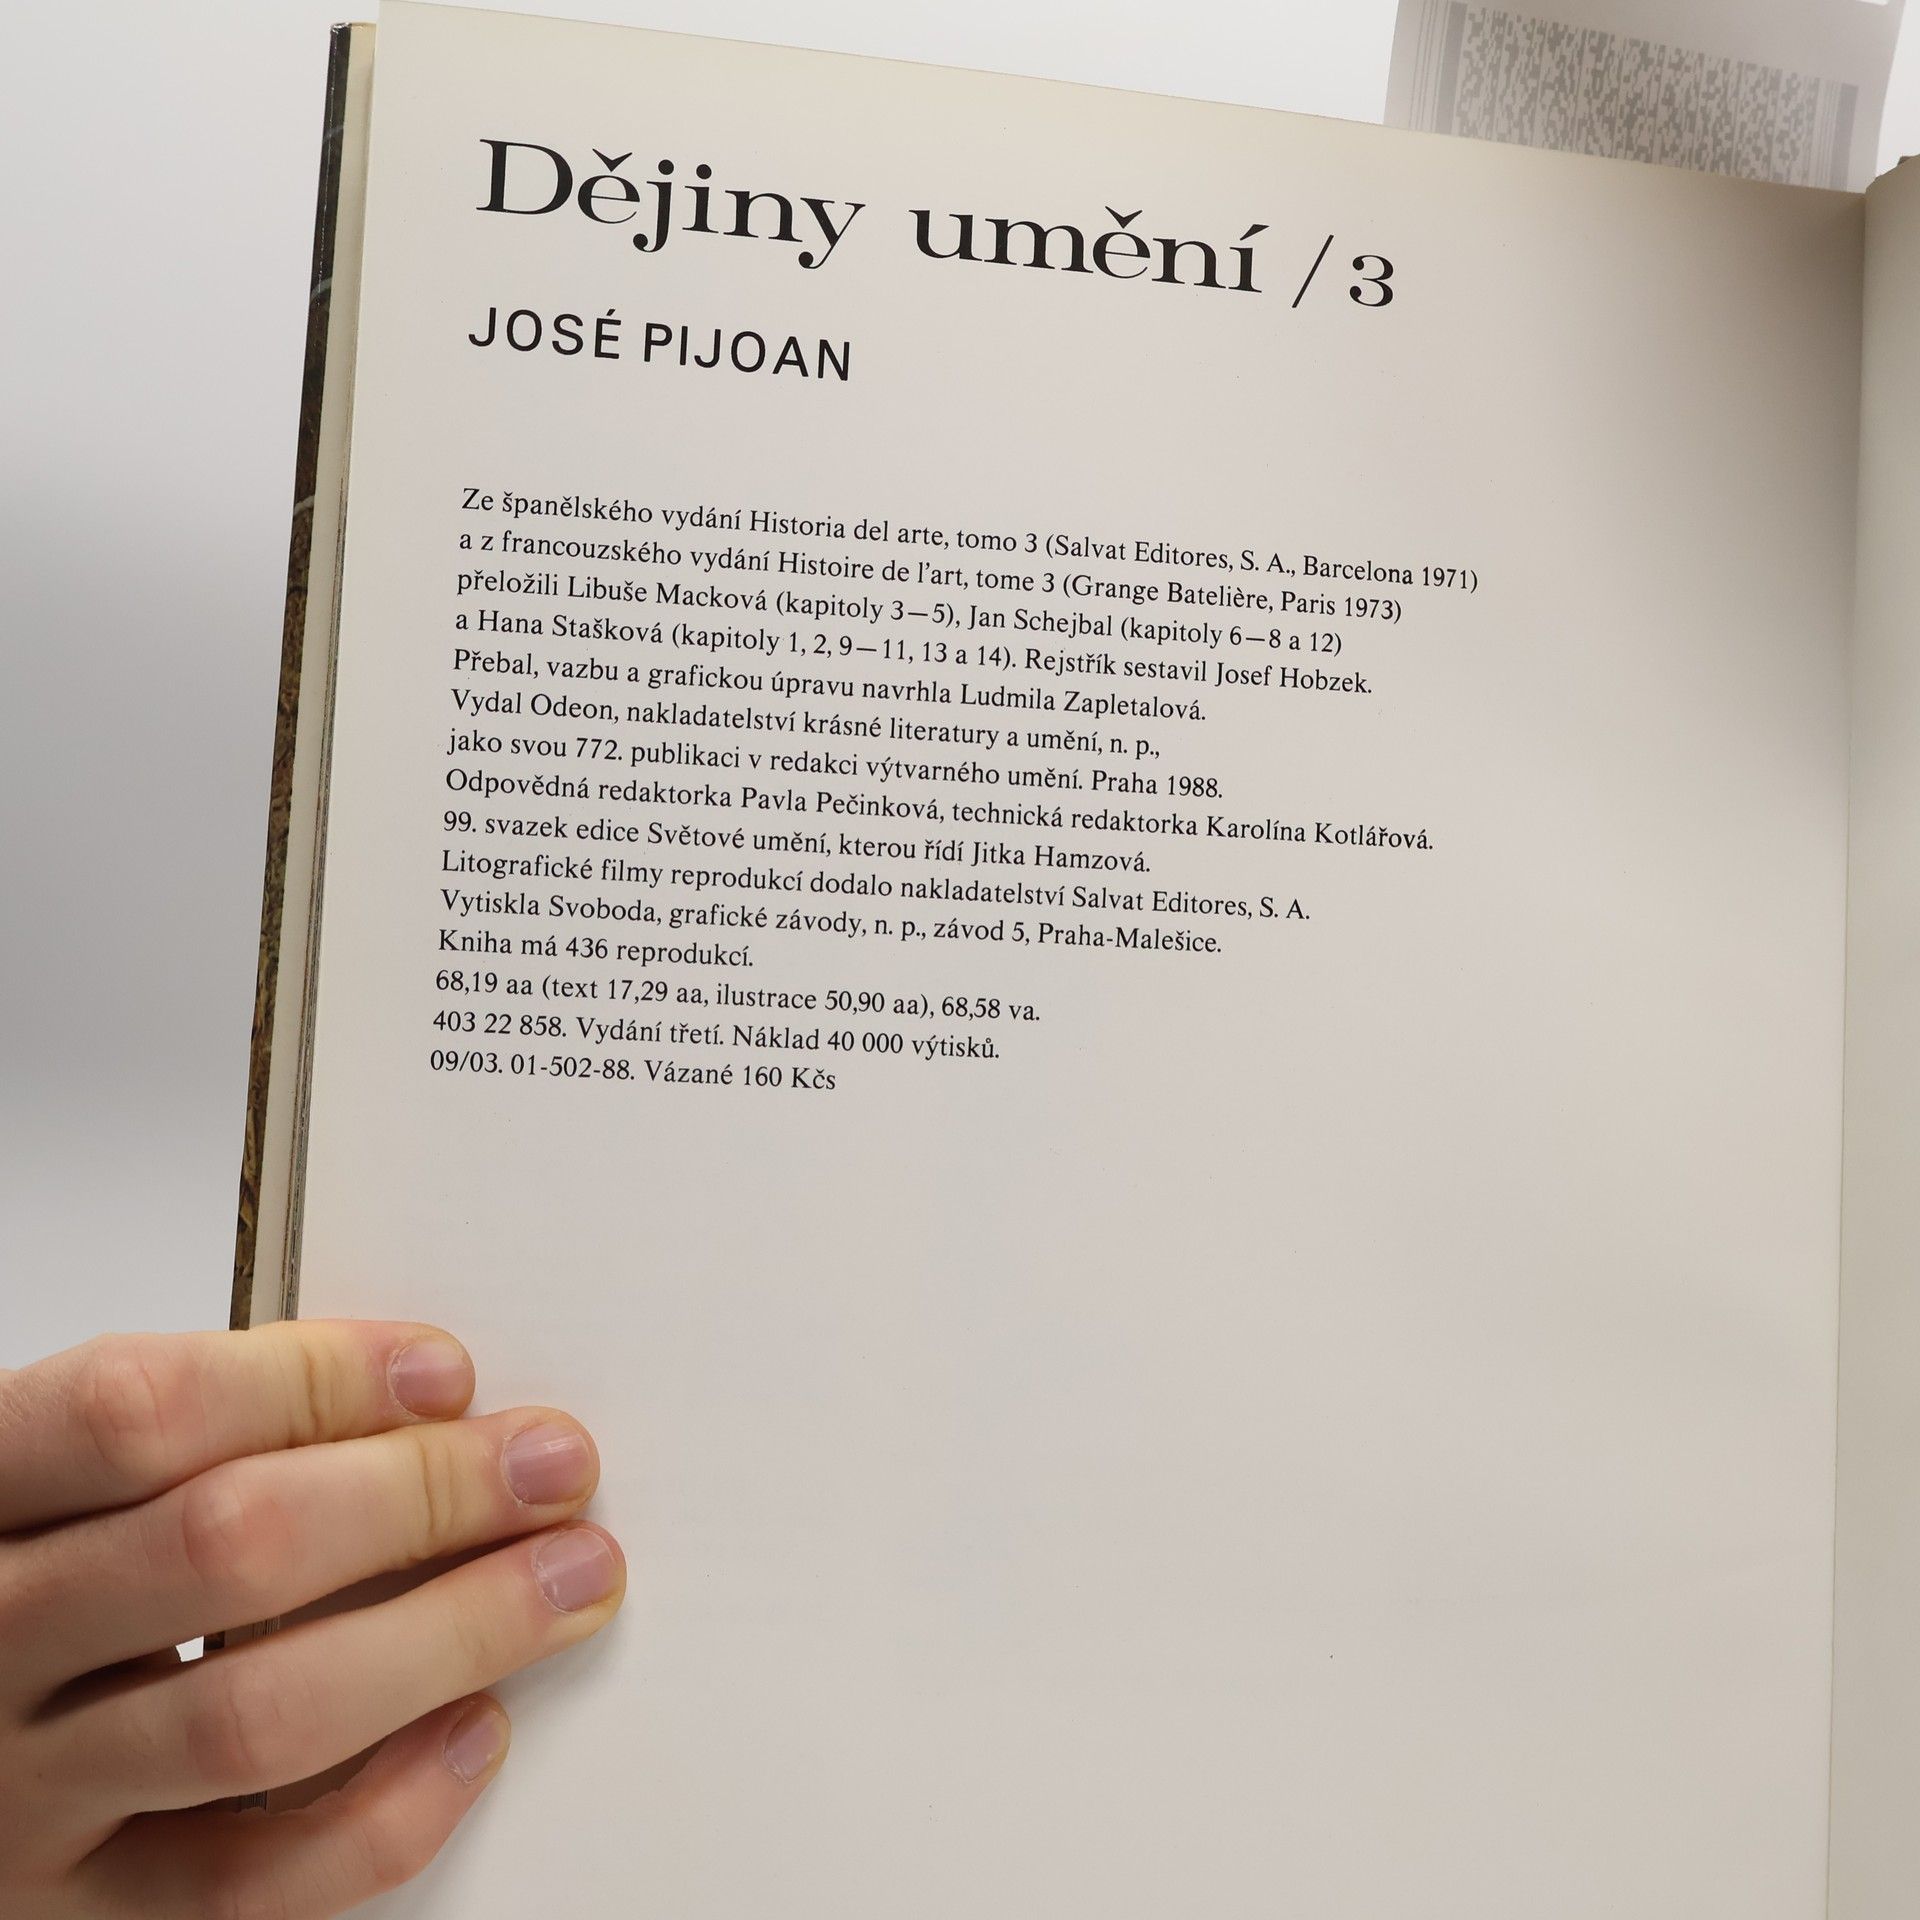 Dějiny umění / 3
JOSÉ PIJOAN
Ze španělského vydání Historia del arte, tomo 3 (Salvat Editores, S. A., Barcelona 1971)
a z francouzského vydání Histoire de l'art, tome 3 (Grange Batelière, Paris 1973)
přeložili Libuše Macková (kapitoly 3—5), Jan Schejbal (kapitoly 6—8 a 12)
a Hana Stašková (kapitoly 1, 2, 9—11, 13 a 14). Rejstřík sestavil Josef Hobzek.
Přebal, vazbu a grafickou úpravu navrhla Ludmila Zapletalová.
Vydal Odeon, nakladatelství krásné literatury a umění, n. p.,
jako svou 772. publikaci v redakci výtvarného umění. Praha 1988.
Odpovědná redaktorka Pavla Pečinková, technická redaktorka Karolína Kotlářová.
99. svazek edice Světové umění, kterou řídí Jitka Hamzová.
Litografické filmy reprodukcí dodalo nakladatelství Salvat Editores, S. A.
Vytiskla Svoboda, grafické závody, n. p., závod 5, Praha-Malešice.
Kniha má 436 reprodukcí.
68,19 aa (text 17,29 aa, ilustrace 50,90 aa), 68,58 va.
403 22 858. Vydání třetí. Náklad 40 000 výtisků.
09/03. 01-502-88. Vázané 160 Kčs